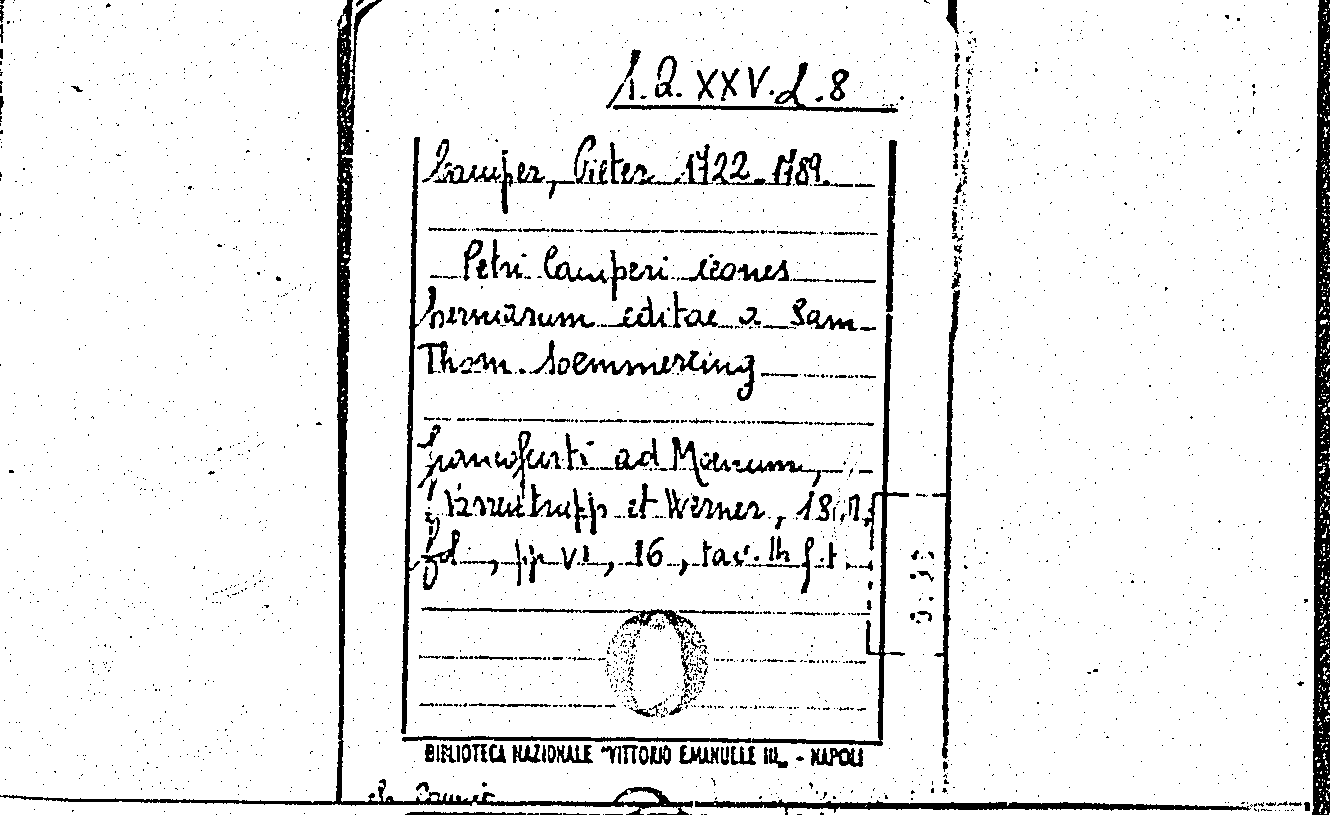 1.Q.XXV.L.8
Camper, Pieter 1722-1789.
Petri Camperi icones
herniarum editae a Sam
Thom. Soemmerring
Francofurti ad Moenum,
Varrentrapp et Werner,
fol, pp VI, 16, tav. f.t.
BIBLIOTECA NAZIONALE "VITTORIO EMANUELE III„ - NAPOLI